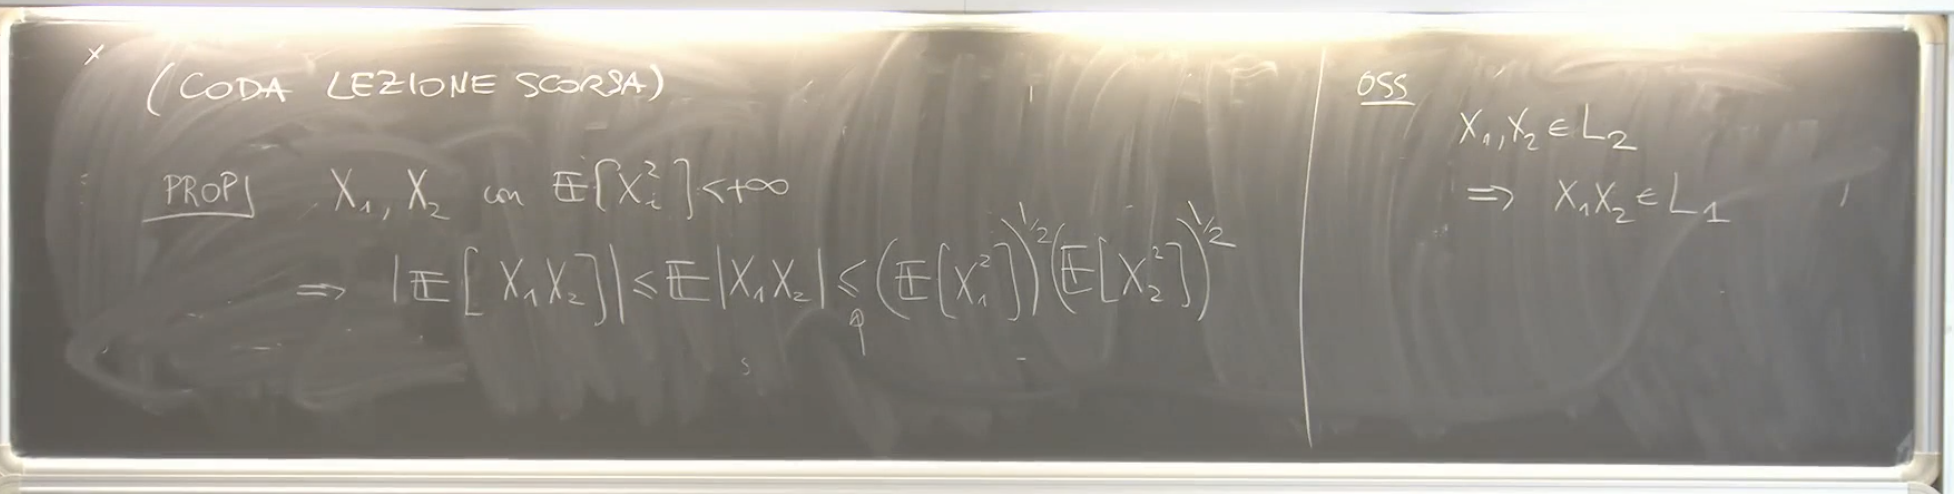 (CODA LEZIONE SCORSA)
PROP X₁, X₂ con 𝔼[Xᵢ²] < +∞
⇒ |𝔼[X₁X₂]| ≤ 𝔼|X₁X₂| ≤ (𝔼[X₁²])^1/2 (𝔼[X₂²])^1/2
↑
OSS
X₁, X₂ ∈ L₂
⇒ X₁X₂ ∈ L₁